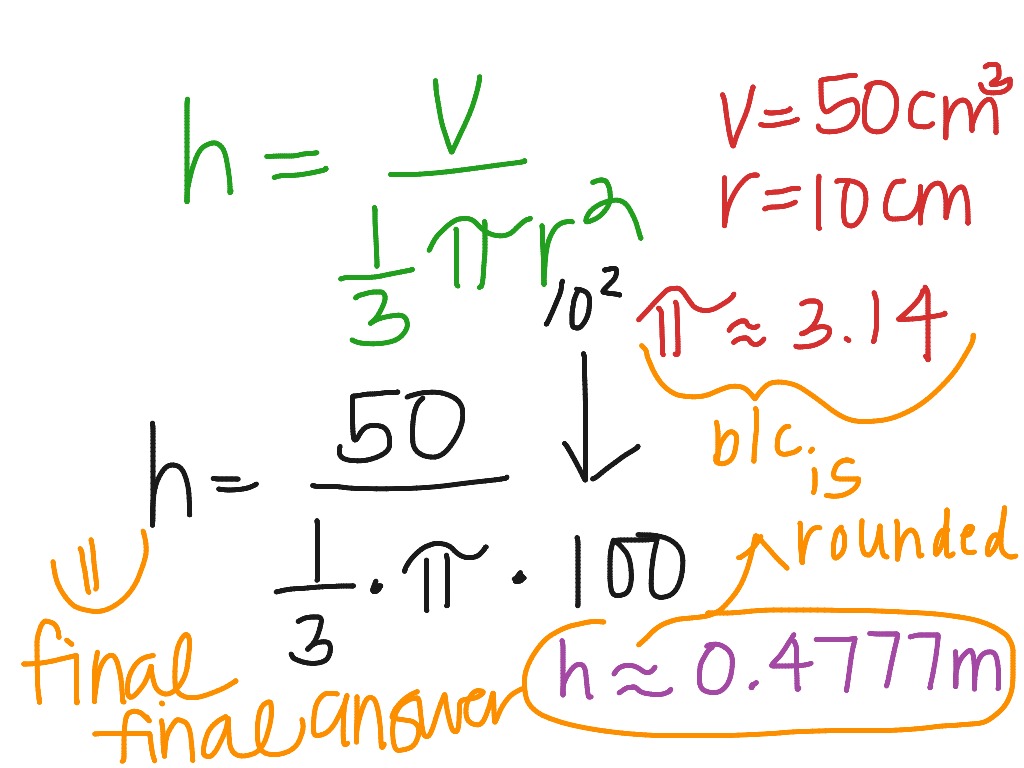 h = V / (1/3 π r²)
V = 50 cm³
r = 10 cm
10²
π ≈ 3.14
b/c. is
rounded
h = 50 / (1/3 · π · 100)
final
final answer
h ≈ 0.4777m